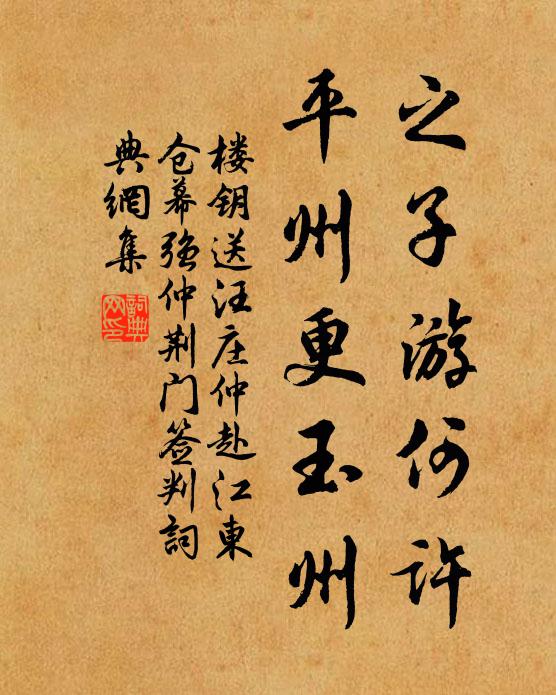 之子游何许
平州更玉州
楼钥送汪庄仲赴江東
仓幕强仲荆门签判詞
典網集
詞典网印